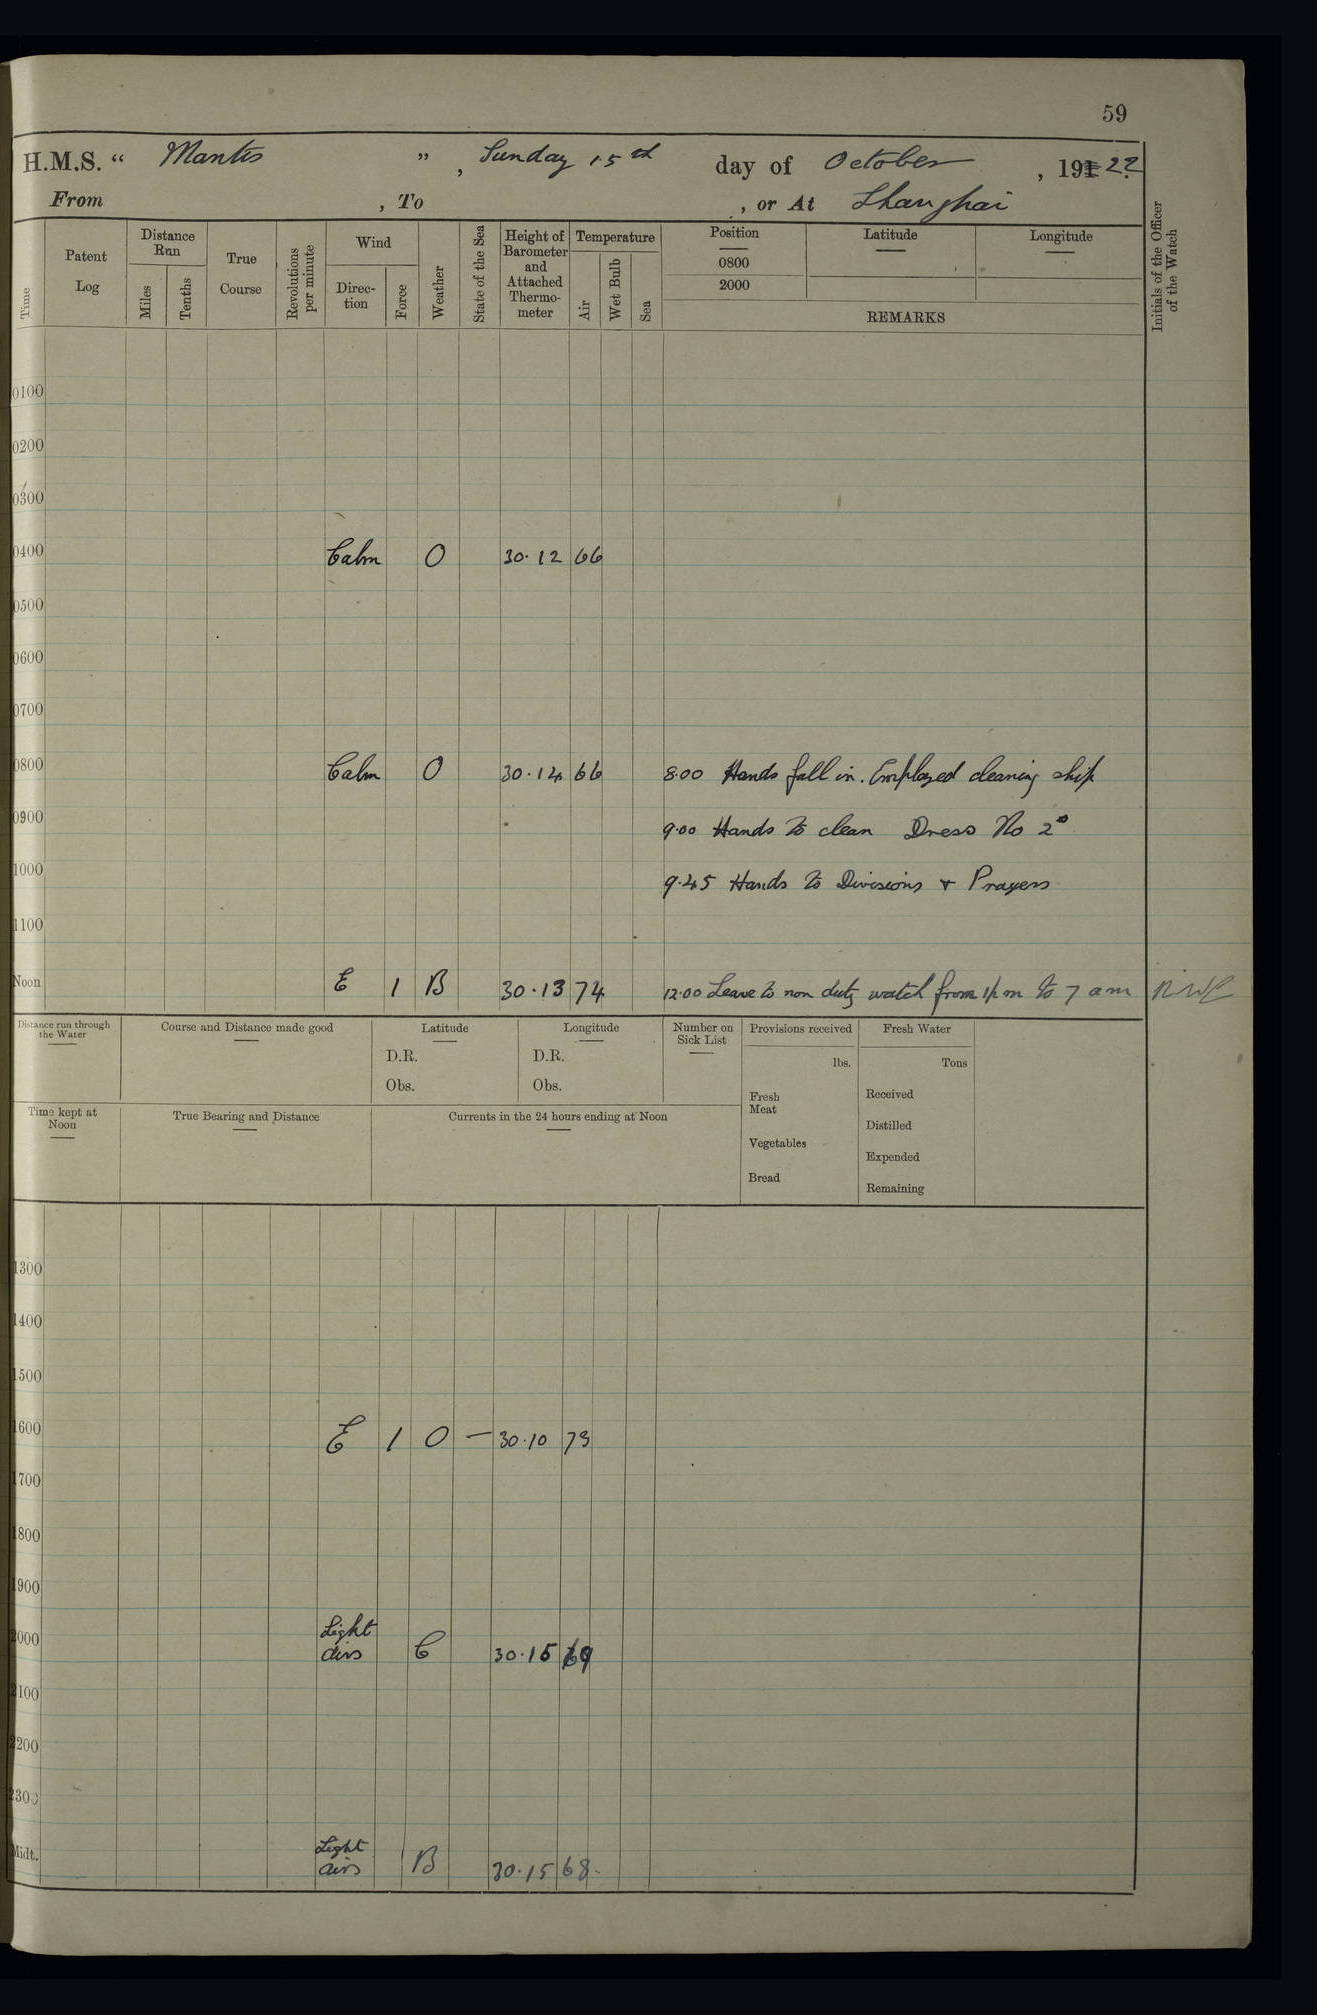 59
H.M.S. " Mantis ", Sunday 15th day of October, 19122
From , To , or At Shanghai
Time
Patent Log
Distance Run
Miles
Tenths
True Course
Revolutions per minute
Wind
Direc-tion
Force
Weather
State of the Sea
Height of Barometer and Attached Thermo-meter
Temperature
Air
Wet Bulb
Sea
Position
0800
2000
Latitude
Longitude
REMARKS
Initials of the Officer of the Watch
0100
0200
0300
0400 Calm O 30.12 66
0500
0600
0700
0800 Calm O 30.14 66 8.00 Hands fall in. Employed cleaning ship
0900 9.00 Hands to clean Dress No 2s
1000 9.45 Hands to Divisions & Prayers
1100
Noon E 1 B 30.13 74 12.00 Leave to non duty watch from 1pm to 7 am
Distance run through the Water
Course and Distance made good
Latitude
D.R.
Obs.
Longitude
D.R.
Obs.
Number on Sick List
Provisions received
lbs.
Fresh Meat
Vegetables
Bread
Fresh Water
Tons
Received
Distilled
Expended
Remaining
Time kept at Noon
True Bearing and Distance
Currents in the 24 hours ending at Noon
1300
1400
1500
1600 E 1 O — 30.10 73
1700
1800
1900
2000 Light airs C 30.15 69
2100
2200
2300
Midt. Light airs B 30.15 68.